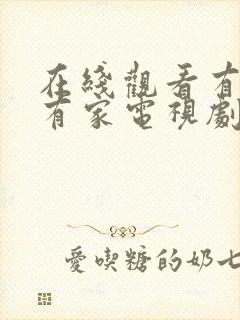 在綫觀看有
有家電視劇
愛喫糖的奶七